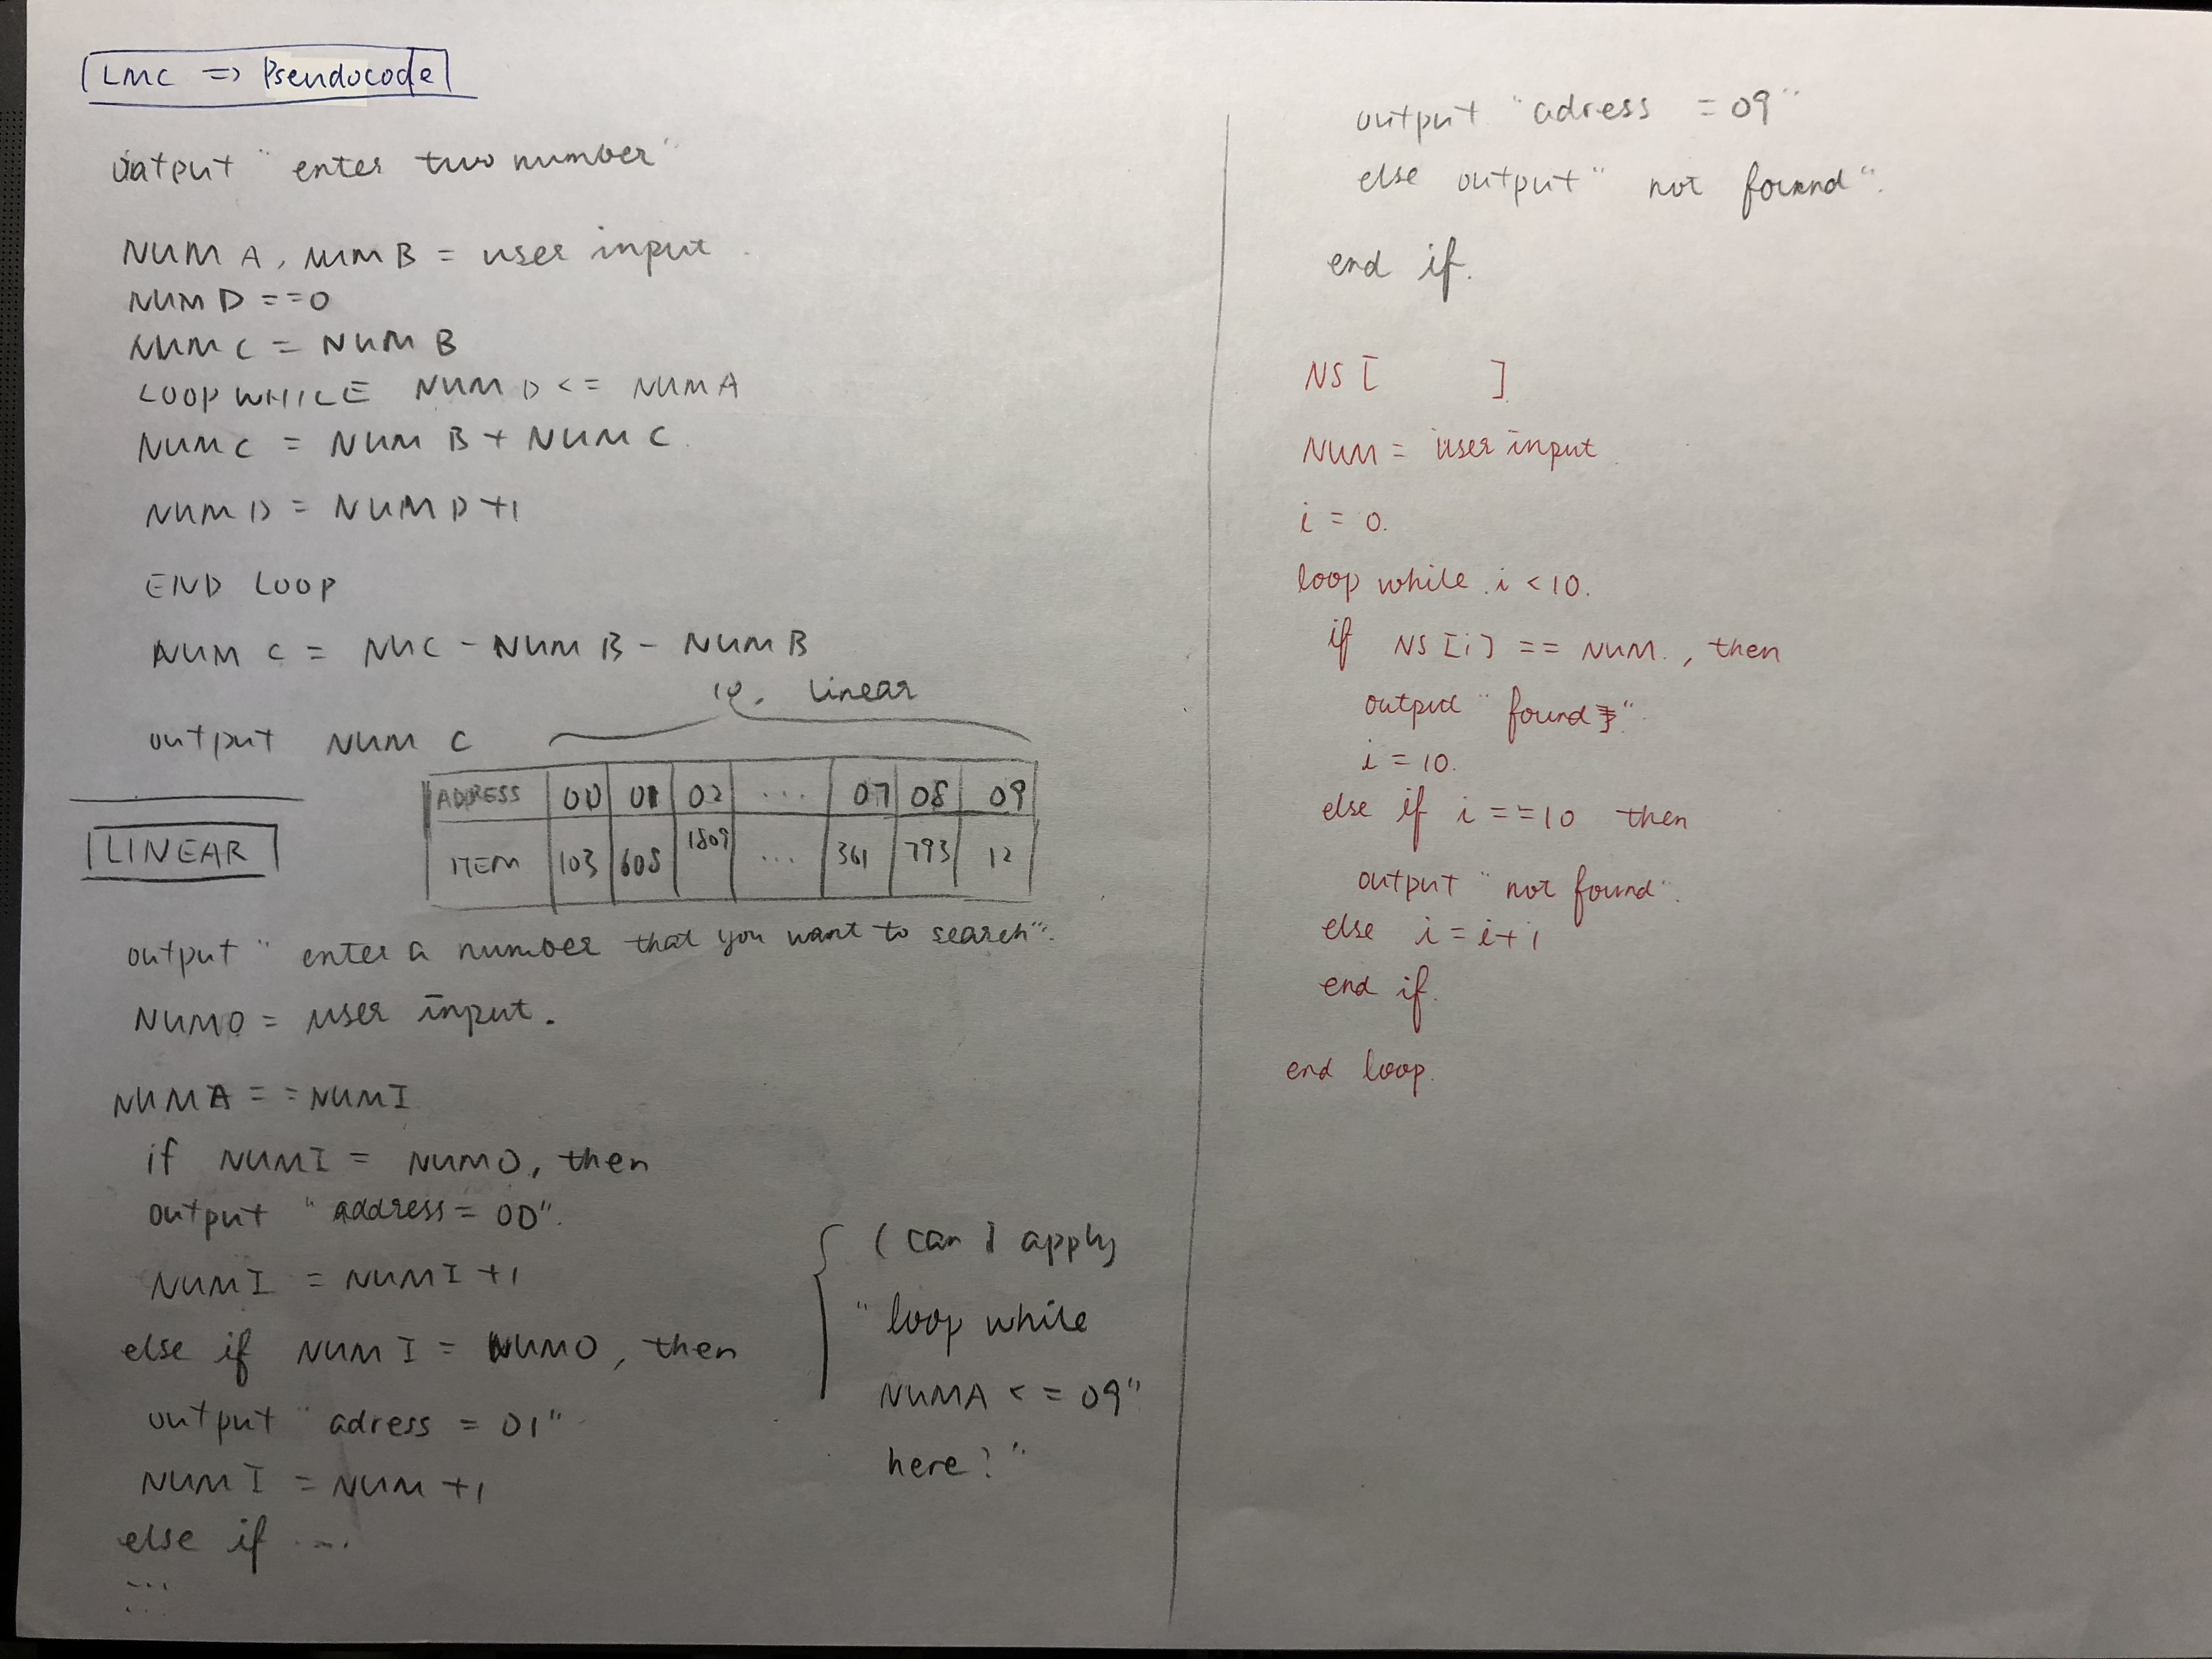 LMC => Pseudocode
output "enter two number"
NUM A, NUM B = user input.
NUM D == 0
NUM C = NUM B
LOOP WHILE NUM D <= NUM A
NUM C = NUM B + NUM C.
NUM D = NUM D +1
END LOOP
NUM C = NUC - NUM B - NUM B
output NUM C
10. linear
ADDRESS 00 01 02 ... 07 08 09
ITEM 103 608 1809 ... 361 793 12
LINEAR
output "enter a number that you want to search".
NUMO = user input.
NUMA == NUMI
if NUMI = NUMO, then
output "address = 00".
NUMI = NUMI +1
else if NUMI = NUMO, then
output "adress = 01"
NUMI = NUM +1
else if ....
...
...
(can I apply
"loop while
NUMA <= 09"
here?"
output "adress = 09"
else output "not found".
end if.
NS [ ]
NUM = user input
i = 0.
loop while i < 10.
if NS [i] == NUM., then
output "found"
i = 10.
else if i == 10 then
output "not found".
else i = i+1
end if.
end loop.